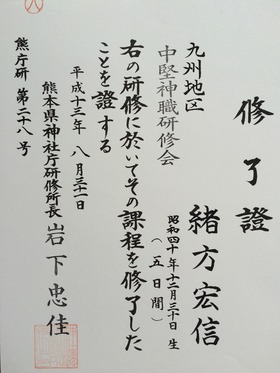 修了證
緒方宏信
昭和四十年十二月三十日生
九州地区
中堅神職研修会
(五日間)
右の研修に於いてその課程を修了した
ことを證する
平成十三年八月三十一日
熊本県神社庁研修所長 岩下忠佳
熊庁研 第二十八号